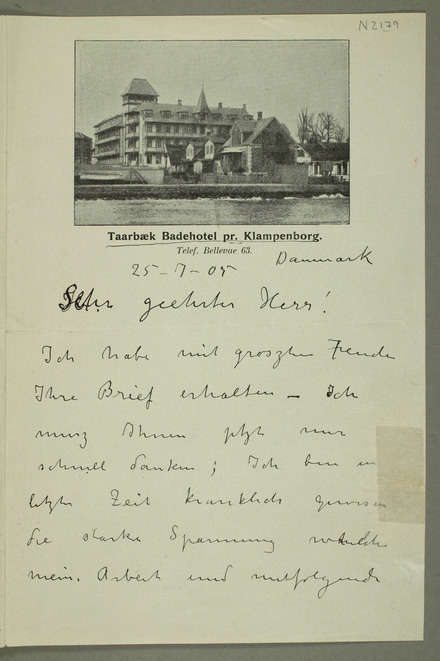 N 2179
Taarbæk Badehotel pr. Klampenborg.
Telef. Bellevue 63.
25-7-05 Danmark
Sehr geehrter Herr!
Ich habe mit groszten Freuden
Ihre Brief erhalten – Ich
musz Ihnen jetzt nur
schnell danken; Ich ben in
letzte Zeit kranklich gewesen
die starke Spannung welche
mein Arbeit und mitfolgende